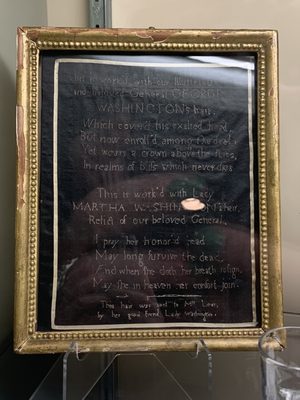 This is work'd with our Illustrious
and beloved General GEORGE
WASHINGTON's hair,
Which cover'd his exalted head,
But now enroll'd among the dead,
Yet wears a crown above the skies,
In realms of bliss which never dies.
This is work'd with Lady
MARTHA WASHINGTON's hair,
Relict of our beloved General,
I pray her honor'd head,
May long survive the dead,
And when she doth her breath resign,
May she in heaven her consort join.
This hair was sent to Miss
by her good friend Lady Washington.